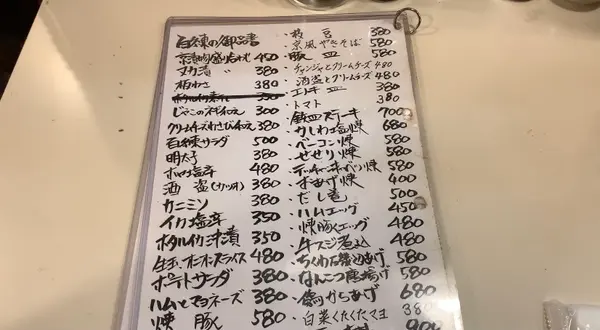 百練の御品書
京漬物盛り合わせ 450
丸カ漬 380
板わさ 380
350
じゃこのネギ和え 300
クリームチーズわさび和え 380
百練サラダ 500
明太子 380
ホタルイカ塩辛 480
酒盗(カツオ) 380
カニミソ 380
イカ塩辛 350
ホタルイカ沖漬 350
生玉オニオンスライス 480
ポテトサラダ 380
ハムとマヨネーズ 380
焼豚 580
枝豆 380
京風やきそば 580
豚皿 580
チャンジャとクリームチーズ 480
酒盗とクリームチーズ 480
エリンギ皿 380
トマト 380
鉄皿ステーキ 700
かしわ塩焼 680
ベーコン焼 580
せせり焼 580
テッチャンキャベツ焼 580
おあげ焼 400
だし巻 500
ハムエッグ 450
焼豚エッグ 480
牛スジ煮込 480
ちくわ石垣あげ 580
なんこつ唐揚げ 580
からあげ 680
白菜くたくたマヨ 380
900